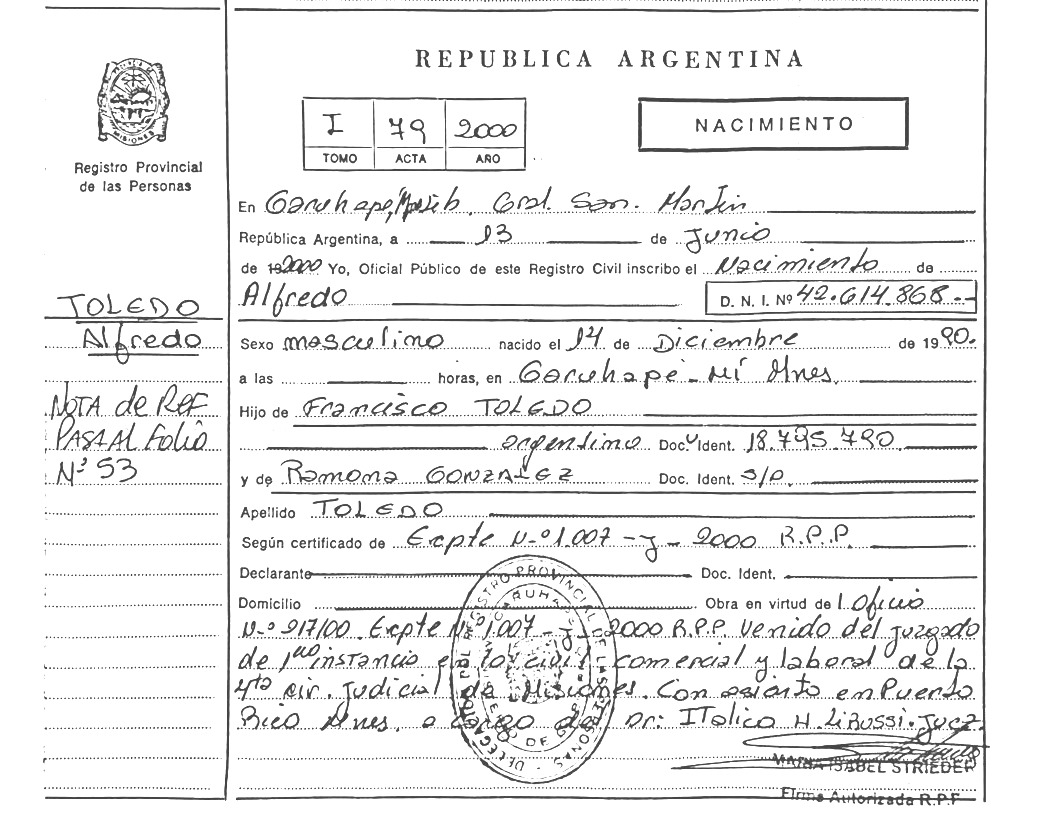 REPUBLICA ARGENTINA
I 79 2000
TOMO ACTA AÑO
NACIMIENTO
MISIONES
Registro Provincial
de las Personas
En Garuhape, Gral. San. Martin
República Argentina, a 13 de Junio
de 2000 Yo, Oficial Público de este Registro Civil inscribo el Nacimiento de
Alfredo D. N. I. Nº 42.614.868.-
TOLEDO
Alfredo
Sexo masculino nacido el 14 de Diciembre de 1990.
a las horas, en Garuhape - Mí Mnes.
NOTA de REF
PASA Al Folio
Nº 53
Hijo de Francisco TOLEDO
argentino Doc. Ident. 18.795.790
y de Ramona GONZALEZ Doc. Ident. S/D.
Apellido TOLEDO
Según certificado de Expte N-º 1.007 - J - 2000 R.P.P.
Declarante Doc. Ident.
Domicilio Obra en virtud de Oficio
N-º 917/00. Expte Nº 1.007 - J - 2000 R.P.P. Venido del Juzgado
de 1ra instancia en lo civil, comercial y laboral de la
4ta cir. Judicial de Misiones. Con asiento en Puerto
Rico Mnes, a cargo del Dr: ITalico H. LiBussi. Juez
DELEGACION DEL REGISTRO PROVINCIAL DE LAS PERSONAS
MARIA ISABEL STRIEDER
Firma Autorizada R.P.P